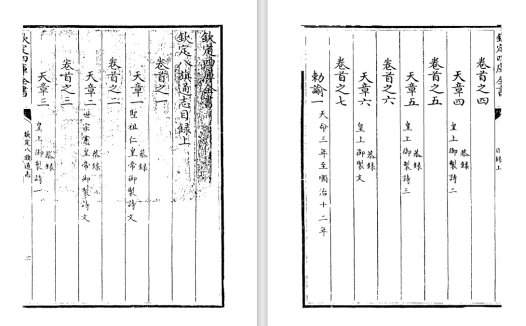 欽定四庫全書
欽定八旗通志目録上
卷首之一
天章一 恭録
聖祖仁皇帝御製詩文
卷首之二
天章二 恭録
世宗憲皇帝御製詩文
卷首之三
天章三 恭録
皇上御製詩一
欽定四庫全書 欽定八旗通志
欽定四庫全書 目録上
卷首之四
天章四 恭録
皇上御製詩二
卷首之五
天章五 恭録
皇上御製詩三
卷首之六
天章六 恭録
皇上御製文
卷首之七
勅諭一 天命三年至順治十二年